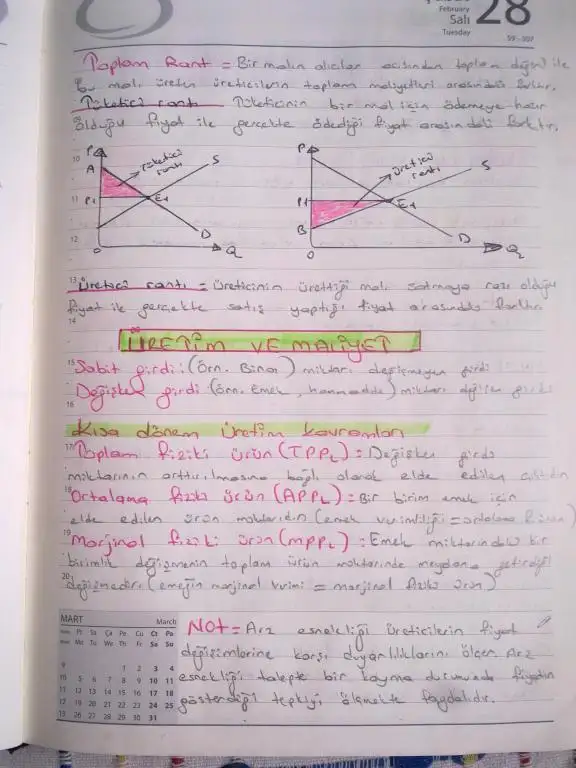 February
Salı 28
Tuesday
59 - 307
Toplam Rant = Bir malın alıcılar açısından toplam değeri ile
bu malı üreten üreticilerin toplam maliyetleri arasındaki farktır.
Tüketici rantı Tüketicinin bir mal için ödemeye hazır
olduğu fiyat ile gerçekte ödediği fiyat arasındaki farktır.
P A tüketici rantı S P1 E1 D O Q
P üretici rantı S P1 E1 B D O Q
Üretici rantı = Üreticinin ürettiği malı satmaya razı olduğu
fiyat ile gerçekte satış yaptığı fiyat arasındaki farktır.
ÜRETİM VE MALİYET
Sabit girdi: (Örn. Bina) miktarı değişmeyen girdi
Değişken girdi (örn. Emek, hammadde) miktarı değişen girdi
Kısa dönem üretim kavramları
Toplam fiziki ürün (TPPL): Değişken girdi
miktarının arttırılmasına bağlı olarak elde edilen çıktıdır
Ortalama fiziki ürün (APPL) = Bir birim emek için
elde edilen ürün miktarıdır (emek verimliliği = ortalama
Marjinal fiziki ürün (MPPL): Emek miktarındaki bir
birimlik değişmenin toplam ürün miktarında meydana getirdiği
değişmedir. (emeğin marjinal verimi = marjinal fiziki ürün)
NOT = Arz esnekliği üreticilerin fiyat
değişimlerine karşı duyarlılıklarını ölçer. Arz
esnekliği talepte bir kayma durumunda fiyatın
gösterdiği tepkiyi ölçmekte faydalıdır.
MART March
Pt Sa Ça Pe Cu Ct Pa
Mo Tu We Th Fr Sa Su
9 1 2 3 4
10 5 6 7 8 9 10 11
11 12 13 14 15 16 17 18
12 19 20 21 22 23 24 25
13 26 27 28 29 30 31